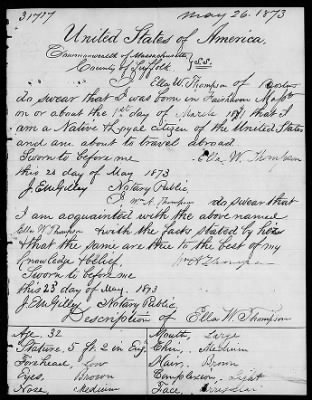 31717
May 26. 1873
United States of America.
Commonwealth of Massachusetts
County of Suffolk } S.S.
I, Ella W. Thompson of Boston
do swear that I was born in Fairhaven Mass
on or about the 1st day of March 1841 that I
am a Native & Loyal citizen of the United States
and am about to travel abroad.
Sworn to before me Ella W. Thompson
this 23 day of May 1873
Notary Public.
I, Wm A. Thompson do swear that
I am acquainted with the above named
Ella W Thompson & with the facts stated by her
& that the same are true to the best of my
Knowledge & belief.
Sworn to before me
this 23 day of May. 1873
Notary Public
Description of Ella W Thompson
Age, 32 Mouth, Large
Stature, 5 ft. 2 in Eng. Chin, Medium
Forehead, Low Hair, Brown
Eyes, Brown Complexion, Light
Nose, Medium Face,